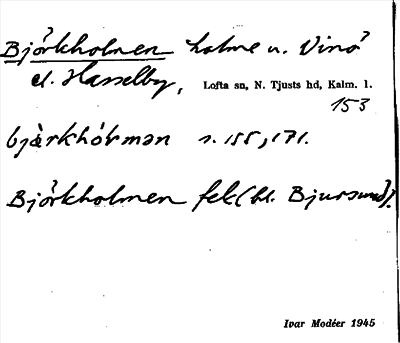 Björkholmen holme u. Vinö
el. Hasselby, Lofta sn, N. Tjusts hd, Kalm. l.
153
bjærkhólman s. 155, 171.
Björkholmen fek (bl. Bjursund).
Ivar Modéer 1945